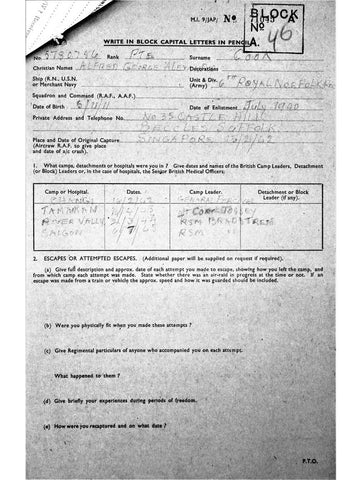 M.I. 9/JAP/ No
BLOCK
No A
A. 46
WRITE IN BLOCK CAPITAL LETTERS IN PENCIL
No. Rank PTE Surname COOK
Christian Names ALFRED GEORGE Decorations
Ship (R.N., U.S.N. or Merchant Navy) Unit & Div. (Army) 6TH ROYAL NORFOLK
Squadron and Command (R.A.F., A.A.F.)
Date of Birth Date of Enlistment July 1940
Private Address and Telephone Number No 35 CASTLE HILL
BECCLES SUFFOLK
Place and Date of Original Capture SINGAPORE 15/2/42
(Aircrew R.A.F. to give place and date of a/c crash).
1. What camp, detachments or hospitals were you in? Give dates and names of the British Camp Leaders, Detachment (or Block) Leaders or, in the case of hospitals, the Senior British Medical Officers:
Camp or Hospital. Dates. Camp Leader. Detachment or Block Leader (if any).
CHANGI
TAMAKAN
RIVER VALLY RSM
SAIGON RSM
2. ESCAPES OR ATTEMPTED ESCAPES. (Additional paper will be supplied on request if required).
(a) Give full description and approx. date of each attempt you made to escape, showing how you left the camp, and
from which camp each attempt was made. State whether there was an air-raid in progress at the time or not. If an
escape was made from a train or vehicle the approx. speed and how it was guarded should be included.
(b) Were you physically fit when you made these attempts?
(c) Give Regimental particulars of anyone who accompanied you on each attempt.
What happened to them?
(d) Give briefly your experiences during periods of freedom.
(e) How were you recaptured and on what date?
P.T.O.